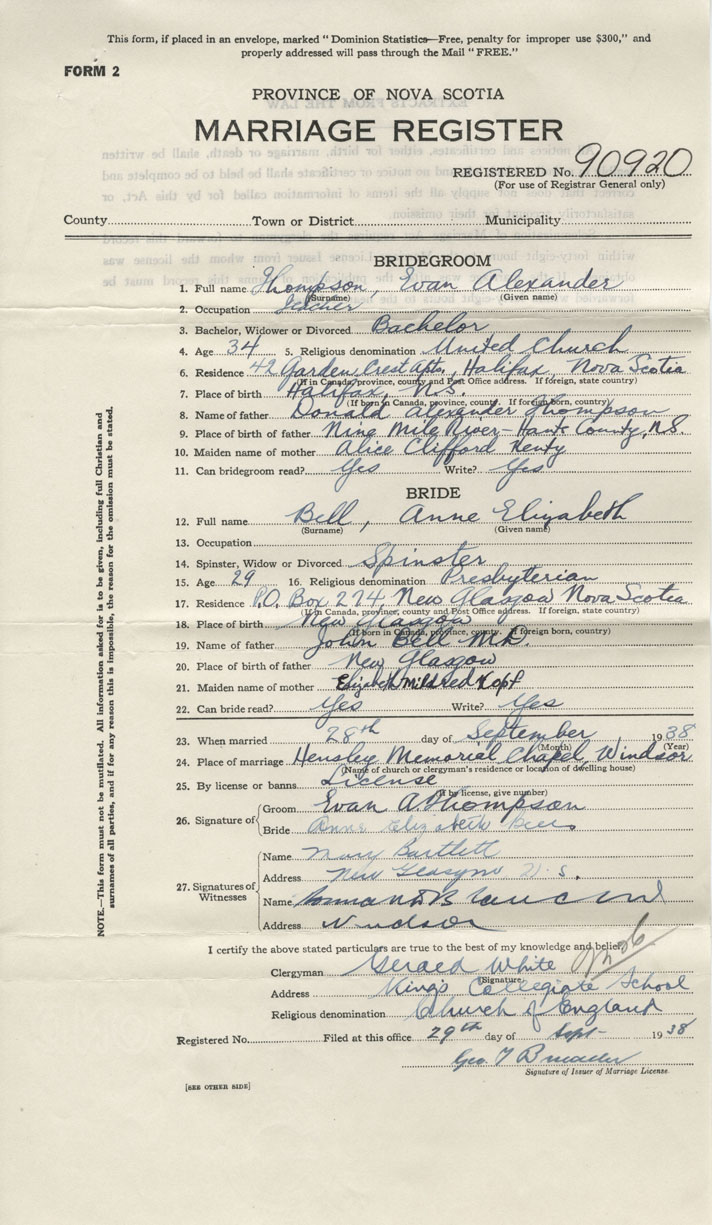 This form, if placed in an envelope, marked “Dominion Statistics—Free, penalty for improper use $300,” and
properly addressed will pass through the Mail “FREE.”
FORM 2
PROVINCE OF NOVA SCOTIA
MARRIAGE REGISTER
REGISTERED No. 90920
(For use of Registrar General only)
County Town or District Municipality
BRIDEGROOM
1. Full name Thompson, Evan Alexander
(Surname) (Given name)
2. Occupation Teacher
3. Bachelor, Widower or Divorced Bachelor
4. Age 34 5. Religious denomination United Church
6. Residence 42 Garden Crest Apts., Halifax, Nova Scotia
(If in Canada, province, county and Post Office address. If foreign, state country)
7. Place of birth Halifax, N.S.
(If born in Canada, province, county. If foreign born, country)
8. Name of father Donald Alexander Thompson
9. Place of birth of father Nine Mile River - Hants County, N.S.
10. Maiden name of mother Alice Clifford
11. Can bridegroom read? Yes Write? Yes
BRIDE
12. Full name Bell, Anne Elizabeth
(Surname) (Given name)
13. Occupation
14. Spinster, Widow or Divorced Spinster
15. Age 29 16. Religious denomination Presbyterian
17. Residence P.O. Box 274 New Glasgow Nova Scotia
(If in Canada, province, county and Post Office address. If foreign, state country)
18. Place of birth New Glasgow
(If born in Canada, province, county. If foreign born, country)
19. Name of father John Bell M.D.
20. Place of birth of father New Glasgow
21. Maiden name of mother Elizabeth Mildred
22. Can bride read? Yes Write? Yes
23. When married 28th day of September 1938
(Month) (Year)
24. Place of marriage Hensley Memorial Chapel, Windsor
(Name of church or clergyman's residence or location of dwelling house)
25. By license or banns License
(If by license, give number)
26. Signature of Groom Evan A Thompson
Bride Anne Elizabeth Bell
27. Signatures of Witnesses
Name Mary Bartlett
Address New Glasgow N.S.
Name
Address Windsor
I certify the above stated particulars are true to the best of my knowledge and belief.
Clergyman Gerald White
(Signature)
Address King's Collegiate School
Religious denomination Church of England
Registered No. Filed at this office 29th day of Sept- 1938
Geo.
Signature of Issuer of Marriage License.
[SEE OTHER SIDE]
NOTE.—This form must not be mutilated. All information asked for is to be given, including full Christian and
surnames of all parties, and if for any reason this is impossible, the reason for the omission must be stated.